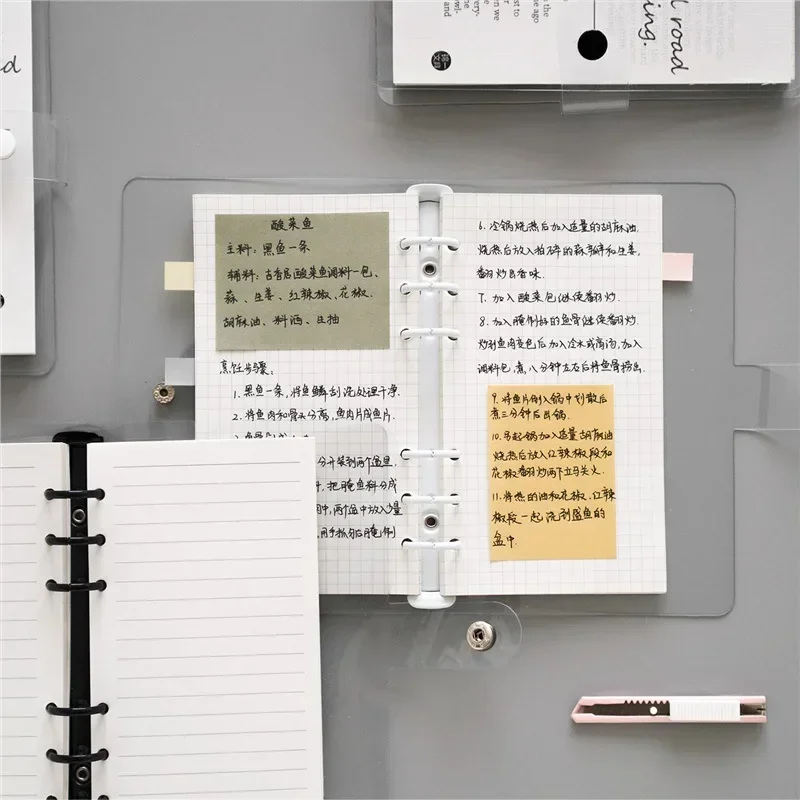 酸菜鱼
主料：黑鱼一条
辅料：古香居酸菜鱼调料一包、
蒜、生姜、红辣椒、花椒、
胡麻油、料酒、生抽
烹饪步骤：
1. 黑鱼一条，将鱼鳞刮洗处理干净.
2. 将鱼肉和骨头分离，鱼肉片成鱼片.
分开装到两个盘里.
片，把腌鱼料分成
两个盘中放入少量
6. 冷锅烧热后加入适量的胡麻油
烧热后放入拍碎的蒜瓣和生姜，
翻炒出香味.
7. 加入酸菜包继续翻炒.
8. 加入腌制好的鱼骨继续翻炒
炒到鱼肉变色后加入冷水或高汤，加入
调料包，煮八分钟左右后将鱼骨捞出.
9. 将鱼片倒入锅中划散后
煮三分钟后出锅.
10. 另起锅加入适量胡麻油
烧热后放入红辣椒段和
花椒翻炒两下立马关火.
11. 将热的油和花椒、红辣
椒段一起浇到盛鱼的
盆中.
l road
ing.